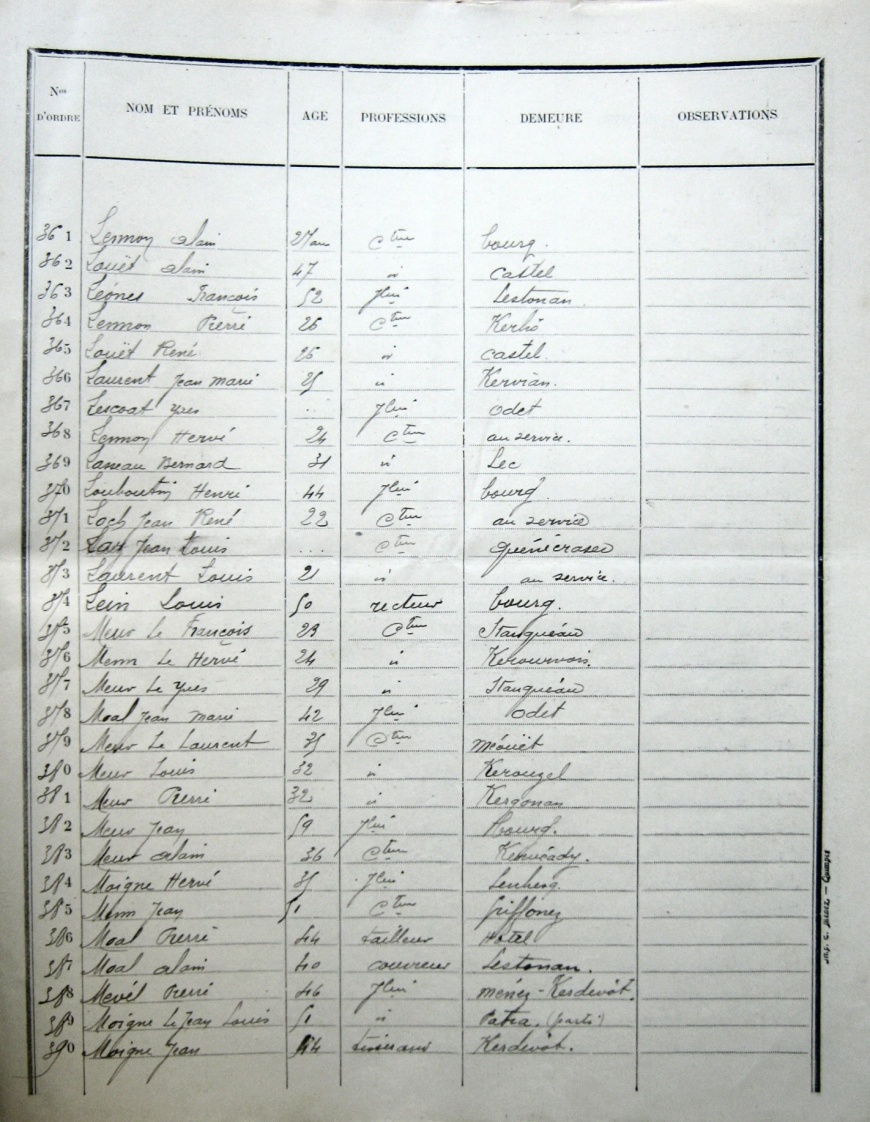 Nos D'ORDRE NOM ET PRÉNOMS AGE PROFESSIONS DEMEURE OBSERVATIONS
361 Lennon alain 27 ans Cteur bourg.
362 Louët alain 47 id Castel
363 Léonès François 52 Jlier Lestonan
364 Lennon Pierre 26 Cteur Kerhó
365 Louët René 26 id Castel
366 Laurent Jean Marie 25 id Kervian.
367 Lescoat Yves ... Jlier Odet
368 Lennon Hervé 24 Cteur au service.
369 Laneau Bernard 31 id Lec
370 Louboutin Henri 44 Jlier bourg
371 Loch Jean René 22 Cteur au service
372 Jean Louis ... Cteur
373 Laurent Louis 21 id au service.
374 Lein Louis 50 recteur bourg.
375 Meur Le François 23 Cteur Stanquéau
376 Menn Le Hervé 24 id Kerourvois.
377 Meur Le Yves 29 id Stanquéau
378 Moal Jean Marie 42 Jlier Odet
379 Meur Le Laurent 35 Cteur Méouët
380 Meur Louis 32 id Kerouzel
381 Meur Pierre 32 id Kergonan
382 Meur Jean 59 Jlier bourg.
383 Meur alain 36 Cteur
384 Moigne Hervé 35 Jlier
385 Menn Jean 51 Cteur Griffonez
386 Moal Pierre 44 tailleur Hotel
387 Moal alain 40 couvreur Lestonan.
388 Mevél Pierre 46 Jlier Menez-Kerdevót.
389 Moigne Le Jean Louis 51 id Patra. (parti)
390 Moigne Jean 44 tisserand Kerdevót.